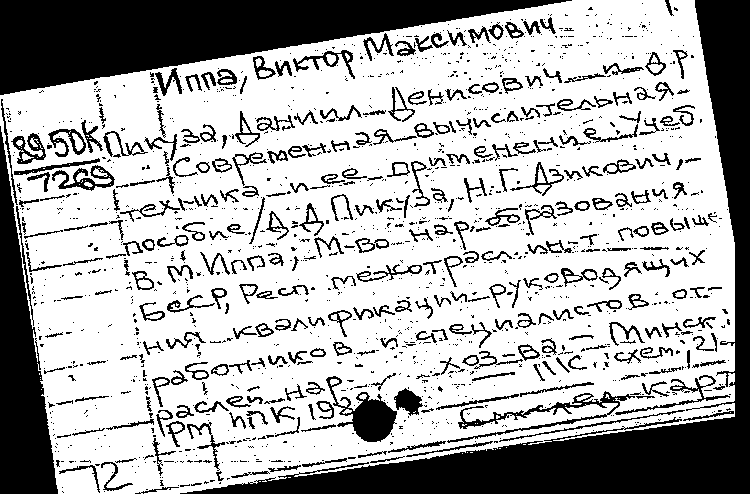 Иппа, Виктор Максимович
89-5DK
7269
Пикуза, Даниил Денисович и др.
Современная вычислительная
техника и ее применение: Учеб.
пособие / Д. Д. Пикуза, Н. Г. Дзикович,
В. М. Иппа; М-во нар. образования
БССР, Респ. межотрасл. ин-т повыше
ния квалификации руководящих
работников и специалистов от-
раслей нар. хоз-ва. - Минск:
РМ ИПК, 198 111 с.: схем.; 21
след. карт
12